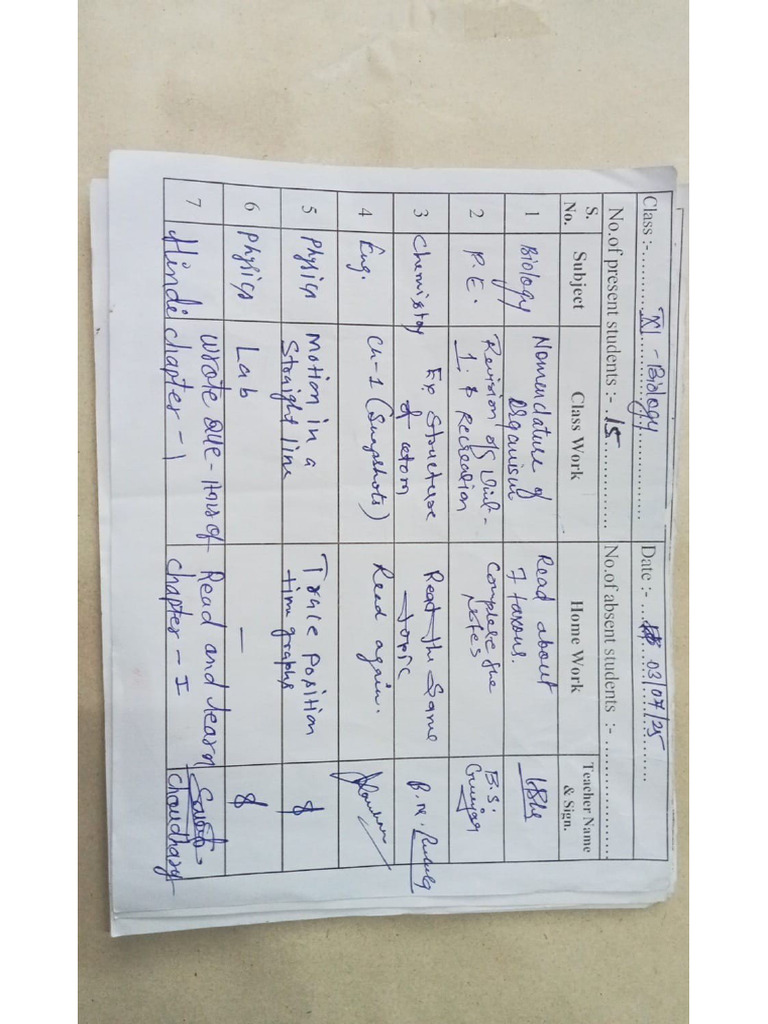 Class :- XI - Biology Date :- 03/07/25
No.of present students :- 15 No.of absent students :-
S. No. Subject Class Work Home Work Teacher Name & Sign.
1 Biology Nomenclature of Organism Read about 7 taxons.
2 P.E. Revision of Unit - 1. & Recreation Complete the Notes B.S. Gunjar
3 Chemistry Exp Structure of atom Read the Same topic B.N.
4 Eng. Ch-1 (Snapshots) Read again.
5 Physics Motion in a Straight line Trace position time graphs
6 Physics Lab -
7 Hindi Wrote Que - of chapter - 1 Read and learn chapter - I Choudhary